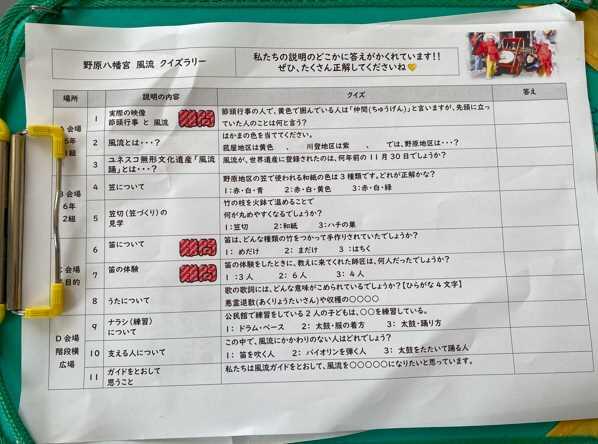 野原八幡宮 風流 クイズラリー
私たちの説明のどこかに答えがかくれています!!
ぜひ、たくさん正解してくださいね
場所 説明の内容 クイズ 答え
会場
6年
2組
D 会場
階段横
広場
1 実際の映像
節頭行事 と 風流
節頭行事の人で、黄色で囲んでいる人は「仲間(ちゅうげん)」と言いますが、先頭に立っ
ていた人のことは何と言う?
2 風流とは・・・?
はかまの色を当ててください。
菰屋地区は黄色 、 川登地区は紫 、 では、野原地区は・・・?
3 ユネスコ無形文化遺産「風流
踊」とは・・・?
風流が、世界遺産に登録されたのは、何年前の11月30日でしょうか?
4 笠について
野原地区の笠で使われる和紙の色は3種類です。どれが正解かな?
1:赤・白・青 2:赤・白・黄色 3:赤・白・緑
5 笠切(笠づくり)の
見学
竹の枝を火鉢で温めることで
何が丸めやすくなるでしょうか?
1:笠切 2:和紙 3:ハチの巣
6 笛について
笛は、どんな種類の竹をつかって手作りされていたでしょうか?
1: めだけ 2: まだけ 3 :はちく
7 笛の体験
笛の体験をしたときに、教えに来てくれた師匠は、何人だったでしょうか?
1 :3人 2: 6人 3: 4人
8 うたについて
歌の歌詞には、どんな意味がこめられているでしょうか?【ひらがな4文字】
悪霊退散(あくりょうたいさん)や収穫の〇〇〇〇
9 ナラシ(練習)
について
公民館で練習をしている2人の子どもは、〇〇を練習している。
1: ドラム・ベース 2: 太鼓・服の着方 3: 太鼓・踊り方
10 支える人について
この中で、風流にかかわりのない人はどれでしょう?
1: 笛を吹く人 2: バイオリンを弾く人 3: 太鼓をたたいて踊る人
11 ガイドをとおして
思うこと
私たちは風流ガイドをとおして、風流を〇〇〇〇〇になりたいと思っています。